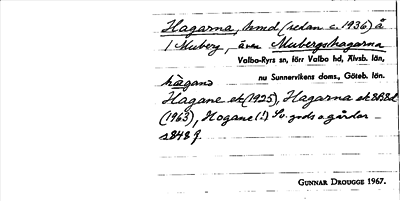 Hagarna, hmd (sedan c. 1936) å
1 Muberg, även Mubergshagarna
Valbo-Ryrs sn, förr Valbo hd, Älvsb. län,
nu Sunnervikens doms., Göteb. län.
hàgana
Hagane ek (1925), Hagarna ek 8B8d
(1963), Hogane (!) Sv. gods o gårdar
s 848 f.
GUNNAR DROUGGE 1967.